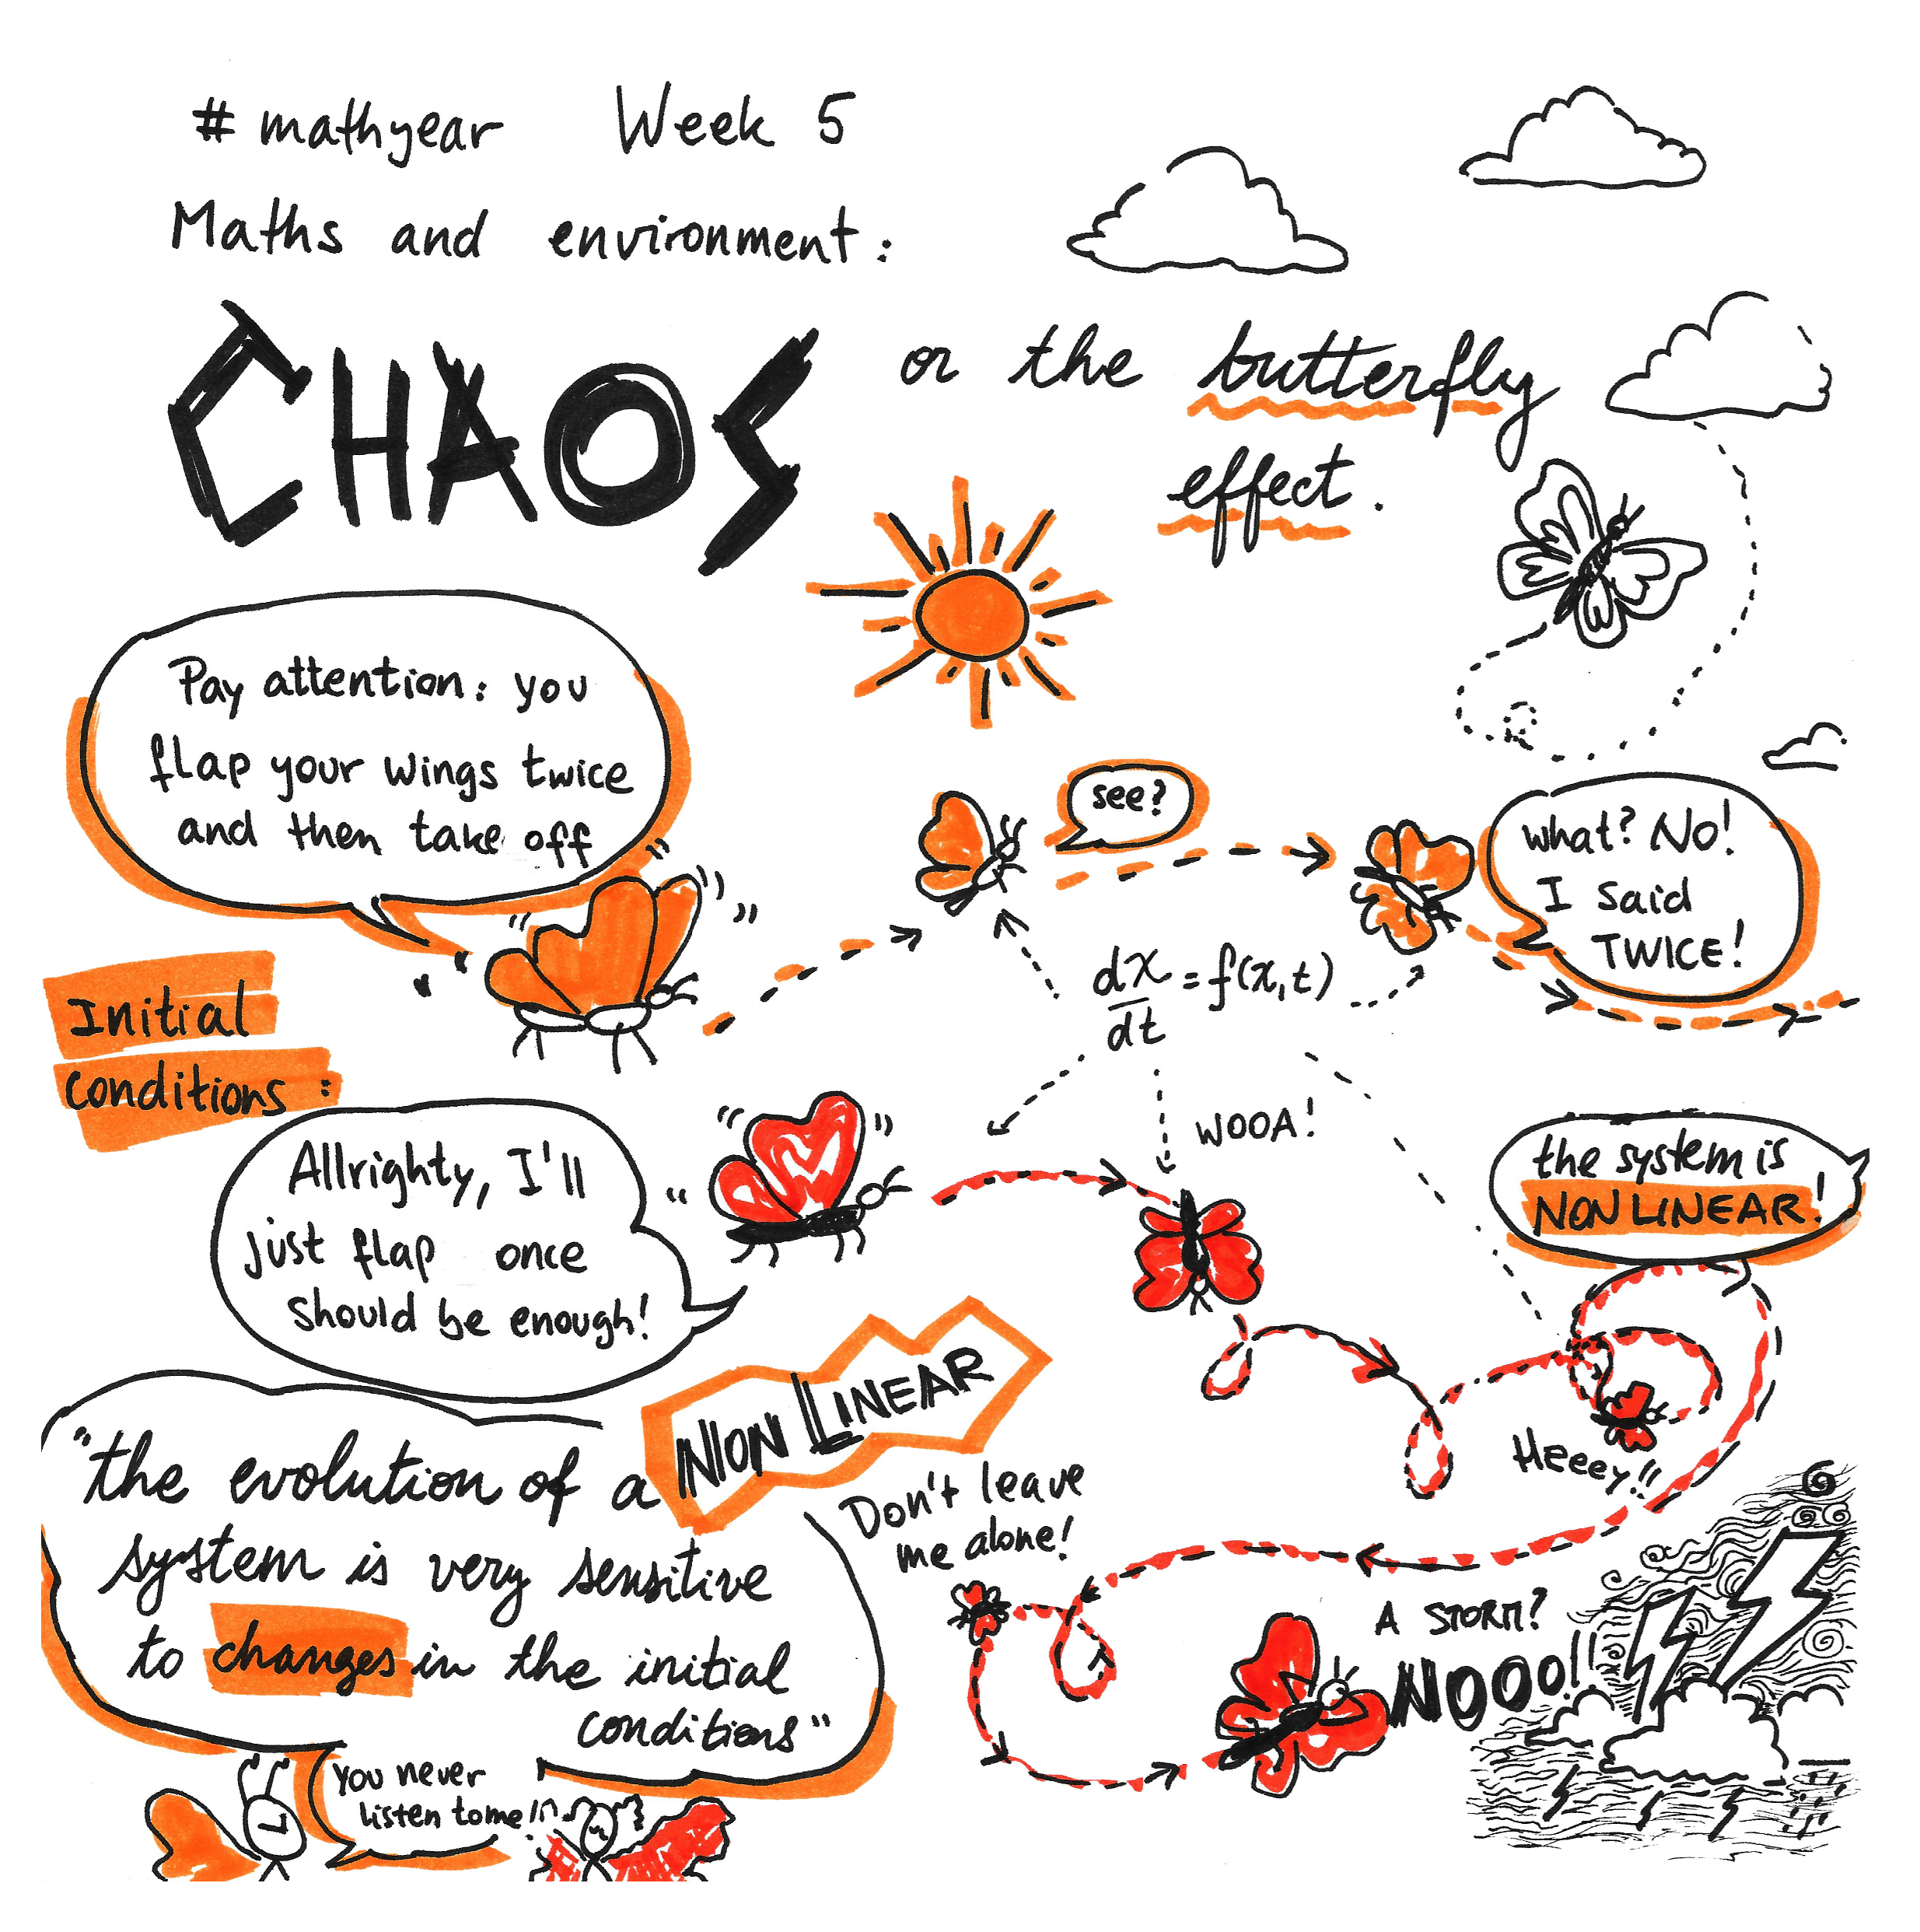 # mathyear Week 5
Maths and environment:
CHAOS or the butterfly
effect.
Pay attention: you
flap your wings twice
and then take off
see?
what? No!
I said
TWICE!
dx/dt = f(x,t)
Initial
conditions:
Allrighty, I'll
just flap once
should be enough!
WOOA!
the system is
NON LINEAR!
"the evolution of a NON LINEAR
system is very sensitive
to changes in the initial
conditions"
Heeey!!
Don't leave
me alone!
A STORM?
NOOO!!
You never
listen to me!!